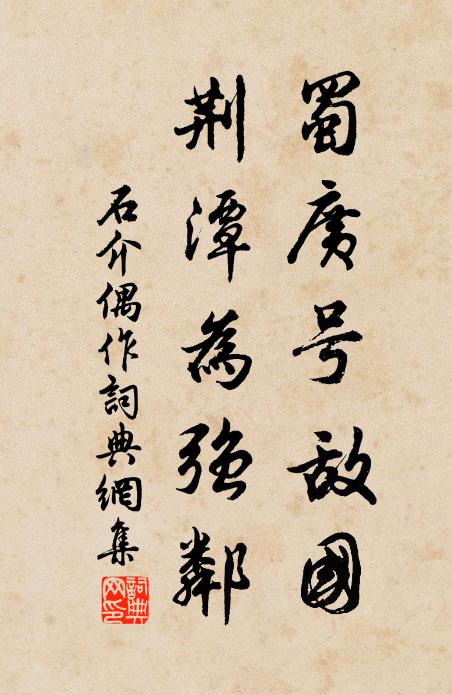 蜀廣号敵國
荆潭為强鄰
石介偶作詞典網集
詞典网印